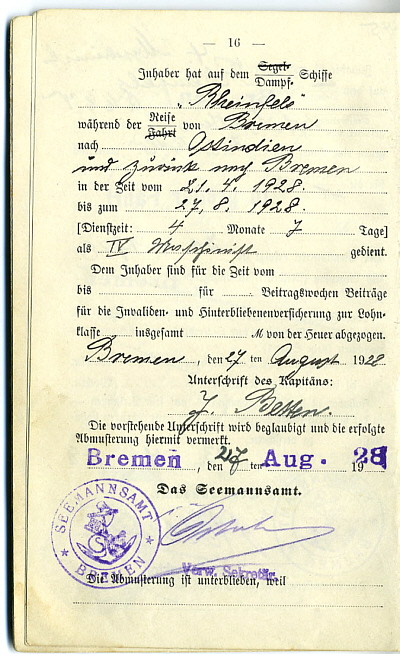 — 16 —
Inhaber hat auf dem Segel- Schiffe
Dampf-
„Rheinfels"
während der Reise von Bremen
Fahrt
nach Ostindien
und zurück nach Bremen
in der Zeit vom 21. 4. 1928.
bis zum 27. 8. 1928.
[Dienstzeit: 4 Monate 7 Tage]
als IV Maschinist gedient.
Dem Inhaber sind für die Zeit vom
bis für Beitragswochen Beiträge
für die Invaliden- und Hinterbliebenenversicherung zur Lohn-
klasse insgesamt M von der Heuer abgezogen.
Bremen, den 27 ten August 1928
Unterschrift des Kapitäns:
J. Betten.
Die vorstehende Unterschrift wird beglaubigt und die erfolgte
Abmusterung hiermit vermerkt.
Bremen, den 27 ten Aug. 1928
Das Seemannsamt.
SEEMANNSAMT
BREMEN
Verw. Sekretär.
Die Abmusterung ist unterblieben, weil